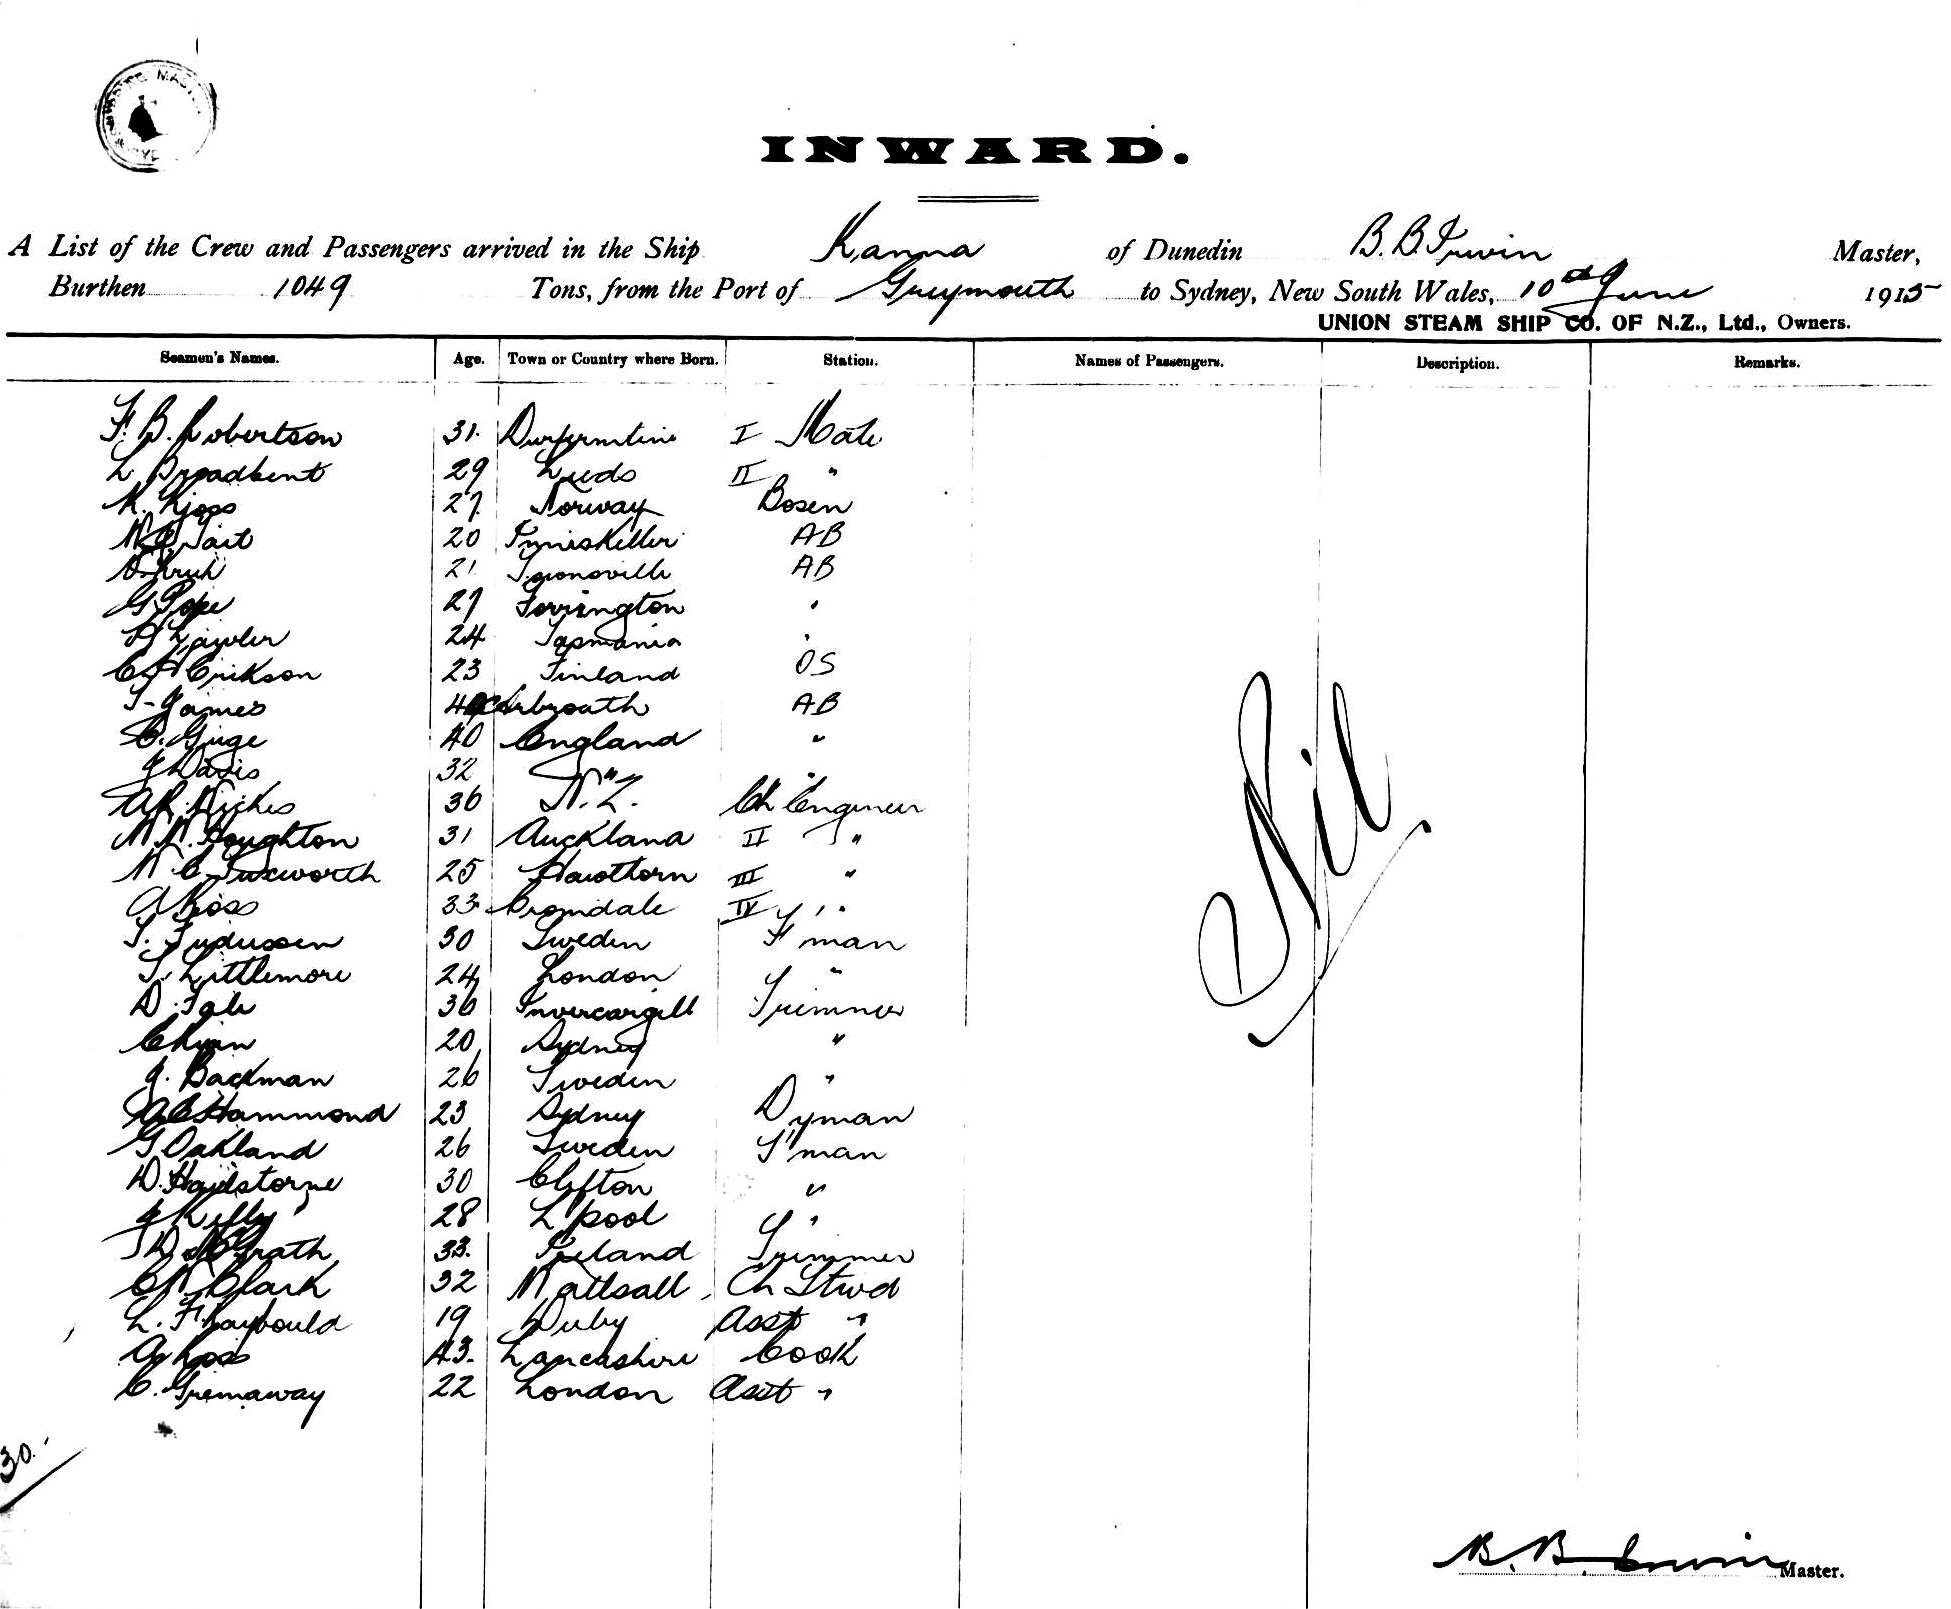 INWARD.
A List of the Crew and Passengers arrived in the Ship Kanna of Dunedin B. B. Irwin Master,
Burthen 1049 Tons, from the Port of Greymouth to Sydney, New South Wales, 10th June 1915
UNION STEAM SHIP CO. OF N.Z., Ltd., Owners.
Seamen's Names. Age. Town or Country where Born. Station. Names of Passengers. Description. Remarks.
F. B. Robertson 31. I Mate
L Broadbent 29 Leeds II "
K. 27. Norway Bosen
Tait 20 Inniskillen AB
21 AB
G Pope 27 Torrington "
H Lawler 24 Tasmania "
C A Erikson 23 Finland OS
T. James Arbroath AB
C. Guge 40 England "
J Davis 32 " "
36 N.Z. Ch Engineer
Houghton 31 Auckland II "
25 Hawthorn III "
A Ross 33 Cromdale IV "
30 Sweden F'man
T. Littlemore 24 London "
D. 36 Invercargill Trimmer
20 Sydney "
J. Backman 26 Sweden "
A C Hammond 23 Sydney D'yman
G Oakland 26 Sweden F'man
D. Hailstorne 30 Clifton "
J Kelly 28 L'pool "
McGrath 33. Ireland Trimmer
C W Clark 32 Wattsall Ch Stwd
L. F Raybould 19 Derby Asst "
A Ross 43. Lancashire Cook
C. Greenaway 22 London Asst "
Nil
30.
B. B. Irwin Master.